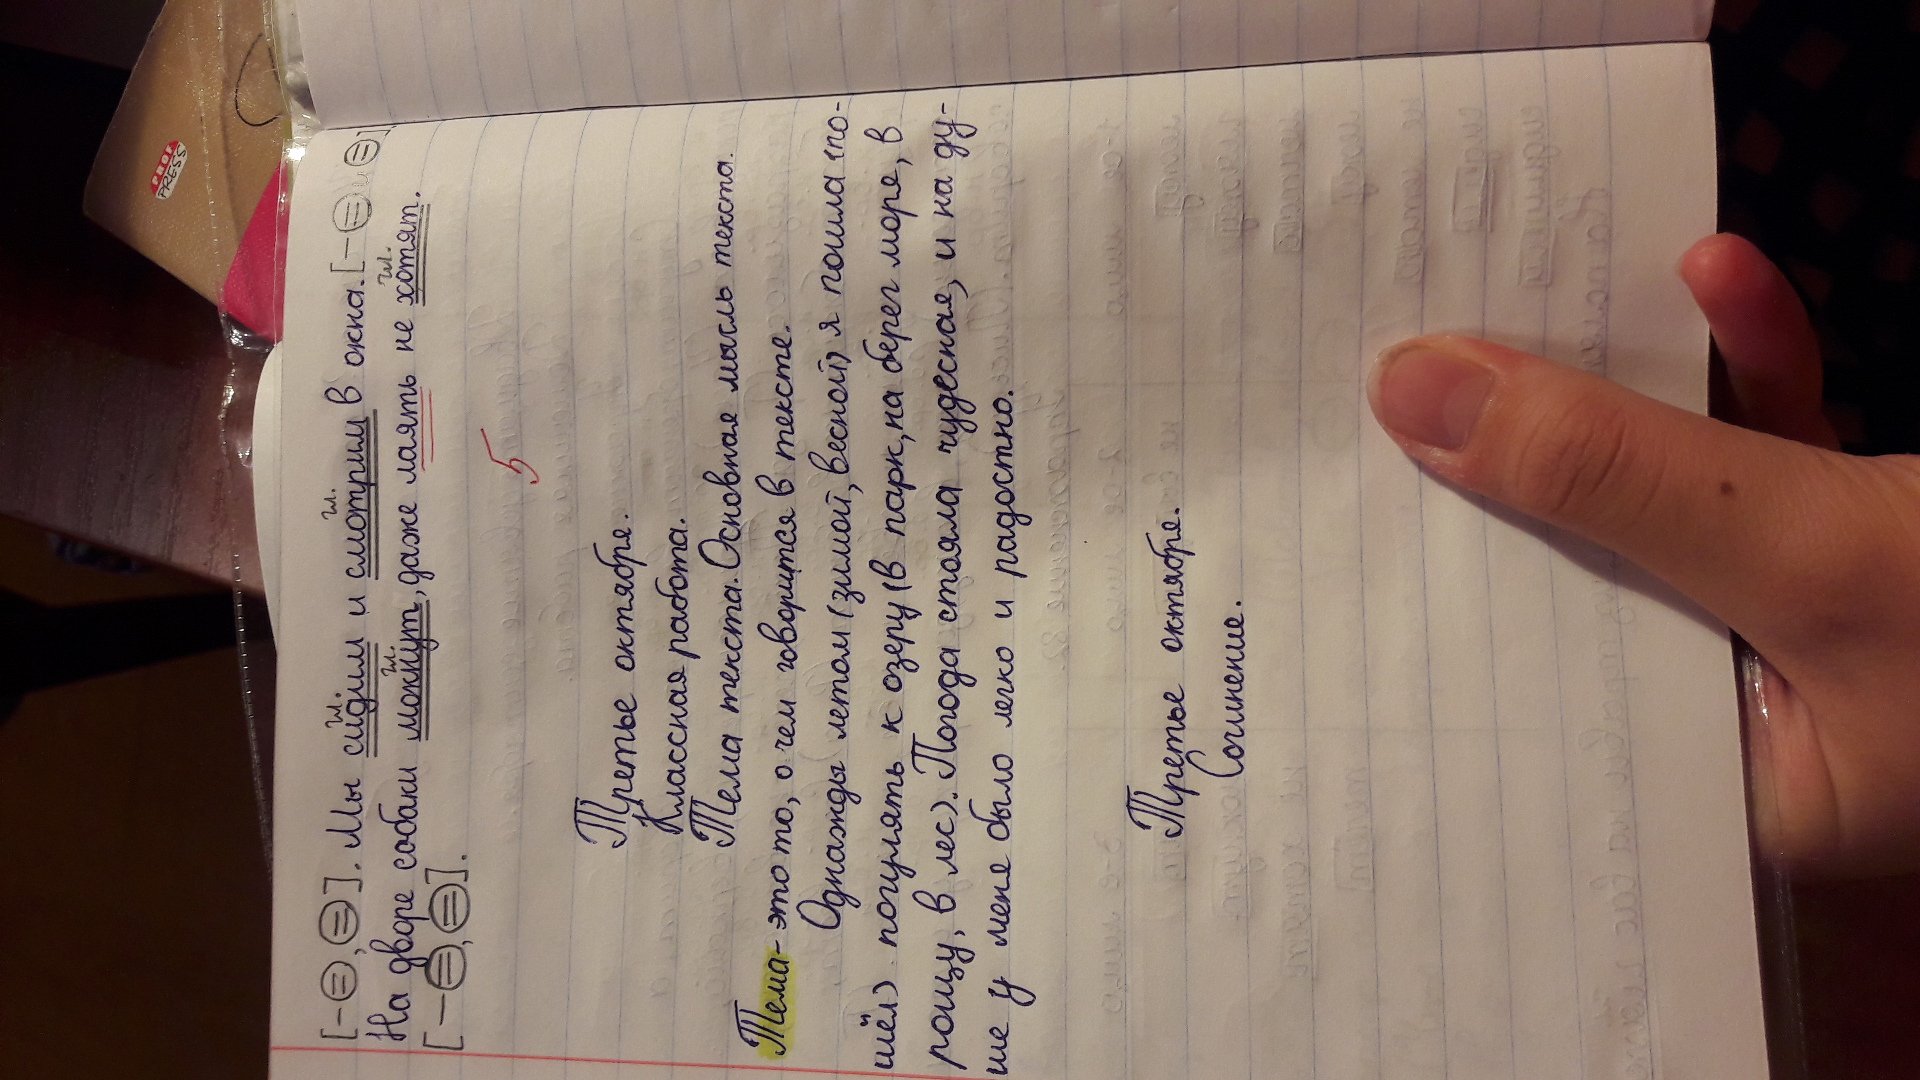 [-=,=]. Мы сидим и смотрим в окна. [-= и =].
гл. гл.
На дворе собаки мокнут, даже лаять не хотят.
гл. гл.
[-=,=].
5
Третье октября.
Классная работа.
Тема текста. Основная мысль текста.
Тема - это то, о чем говорится в тексте.
Однажды летом (зимой, весной) я пошла (по-
шёл) погулять к озеру (в парк, на берег море, в
рощу, в лес). Погода стояла чудесная, и на ду-
ше у меня было легко и радостно.
Третье октября.
Сочинение.
PROF
PRESS